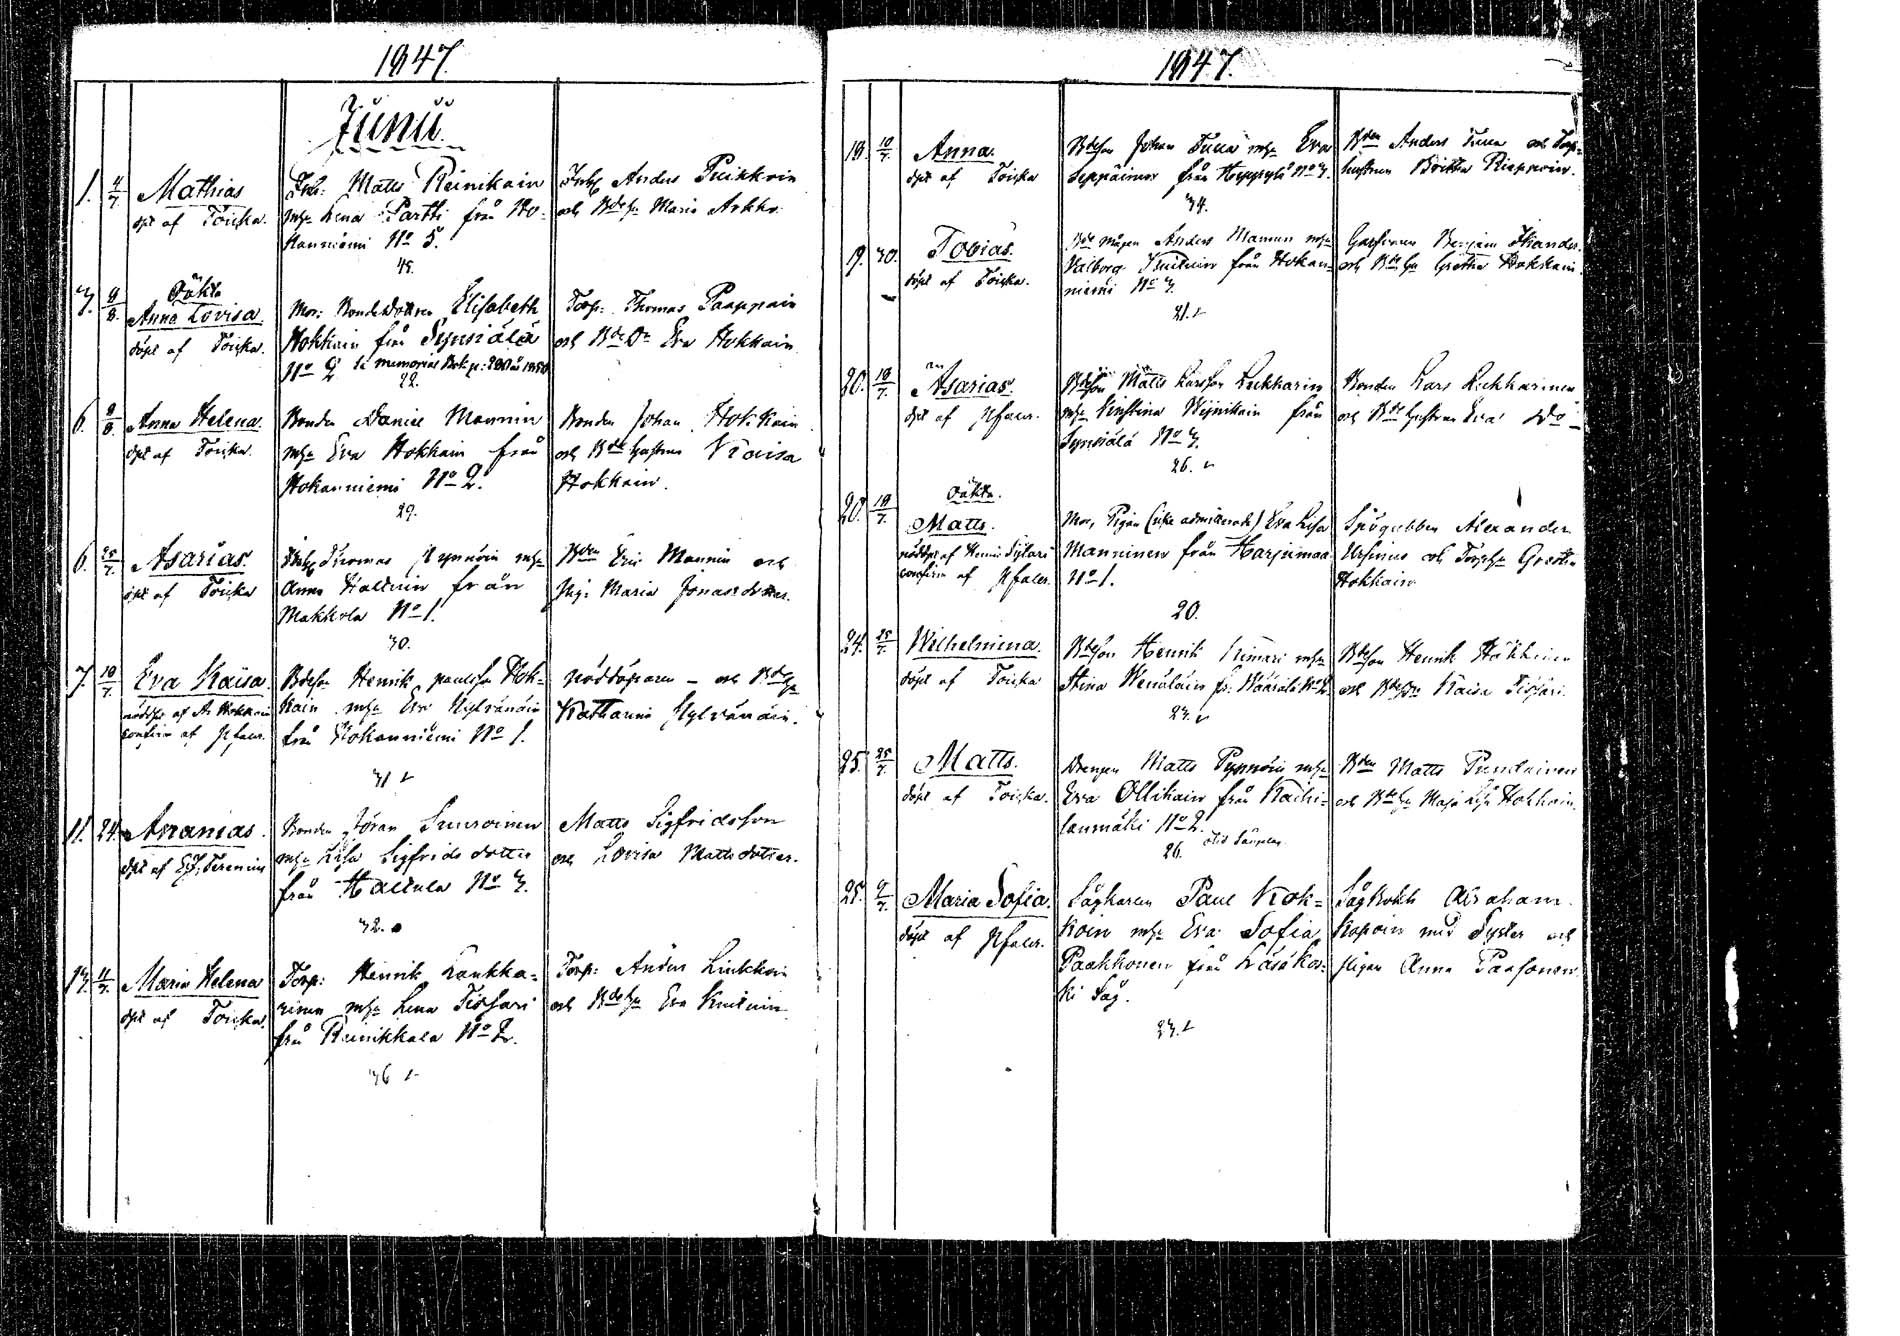 1847.
Junii
1. 4/7. Mathias
döpt af Toiska.
Inh: Matts Reinikain
mh: Lena Partti från Ho-
kanniemi No 5.
45.
Inh: Anders Puikkoin
och Bdehu Maria Arkko.
3. 8/8. Oäkta
Anna Lovisa.
döpt af Toiska.
Mor: Bondedottren Elisabeth
Hokkain från Synsiälä
No 2 memorial Bok p: 280 1850
22.
Torp: Thomas Paappain
och BdeDr Eva Hokkain
6. 8/8. Anna Helena.
döpt af Toiska.
Bonden Daniel Mannin
mh: Eva Hokkain från
Hokanniemi No 2.
29.
Bonden Johan Hokkain
och Bde hustrun Kaisa
Hokkain.
6. 25/7. Asarias.
döpt af Toiska
Inh: Thomas Pynnöin mh:
Anna Haltuin från
Makkola No 1.
30.
Bden Eric Mannin och
Pig: Maria Jonasdotter.
7. 10/7. Eva Kaisa.
nöddöpt af A. Hokkain
confirm af Pfaler.
Bdeson Henrik Paulsson Hok-
kain mh: Eva Hylvänäin
från Hokanniemi No 1.
31
nöddöparen - och Bdehu
Katharina Hylvänäin.
11. 24. Ananias.
döpt af Terenius
Bonden Jöran Suuroinen
mh: Lisa Sigfridsdotter
från Hallula No 3.
32.
Matts Sigfridsson
och Lovisa Mattsdotter.
13. 4/7. Maria Helena
döpt af Toiska.
Torp: Henrik Laukka-
rinen mh: Lena Tiosari
från Reinikkala No 2.
36
Torp: Anders Liukkoin
och Bdehu Eva Knituin
1847.
18. 10/7. Anna.
döpt af Toiska
Bdeson Johan Tuua mh: Eva
Seppäinen från Heppyls No 3.
34.
Bden Anders Tuua och Torp-
hustrun Britta Riepponin.
19. 30. Tobias.
döpt af Toiska.
Bde mågen Anders Mannin mh:
Valborg Knituin från Hokan-
niemi No 3.
21.
Benjam Kiander
och Bde hu Gretha Hokkain.
20. 18/7. Asarias.
döpt af Pfaler.
Bdeson Matts Larsson Liukkarin
mh: Kristina Reinikain från
Synsiälä No 3.
26.
Bonden Lars Liukkarinen
och Bde hustrun Eva Do
20. 18/7. Oäkta.
Matts.
nöddöpt af Henric Sylari
confirm af Pfaler.
Mor, Pigan (icke admitterade) Eva Lisa
Manninen från Harjumaa
No 1.
20.
Spögubben Alexander
Ursinus och Torphu Gretha
Hokkain
24. 25/7. Wilhelmina.
döpt af Toiska
Bdeson Henrik Kimari mh:
Stina Wenäläin fr: Wäärälä No 2
23.
Bdeson Henrik Hokkain
och Bdehu Kaisa Tiosari.
25. 25/7. Matts.
döpt af Toiska.
Drengen Matts Pynnöin mh:
Eva Ollikain från Kaihi-
lanmäki No 2.
26.
Bden Matts Pundainen
och Bdehu Maja Lisa Hokkain.
25. 4/7. Maria Sofia.
döpt af Pfaler.
Sågkaren Paul Kok-
koin mh: Eva Sofia
Paakkonen från Läsäkos-
ki Såg.
23.
Sågkokk Abraham
Kopoin med Syster och
Pigan Anna Paasonen.